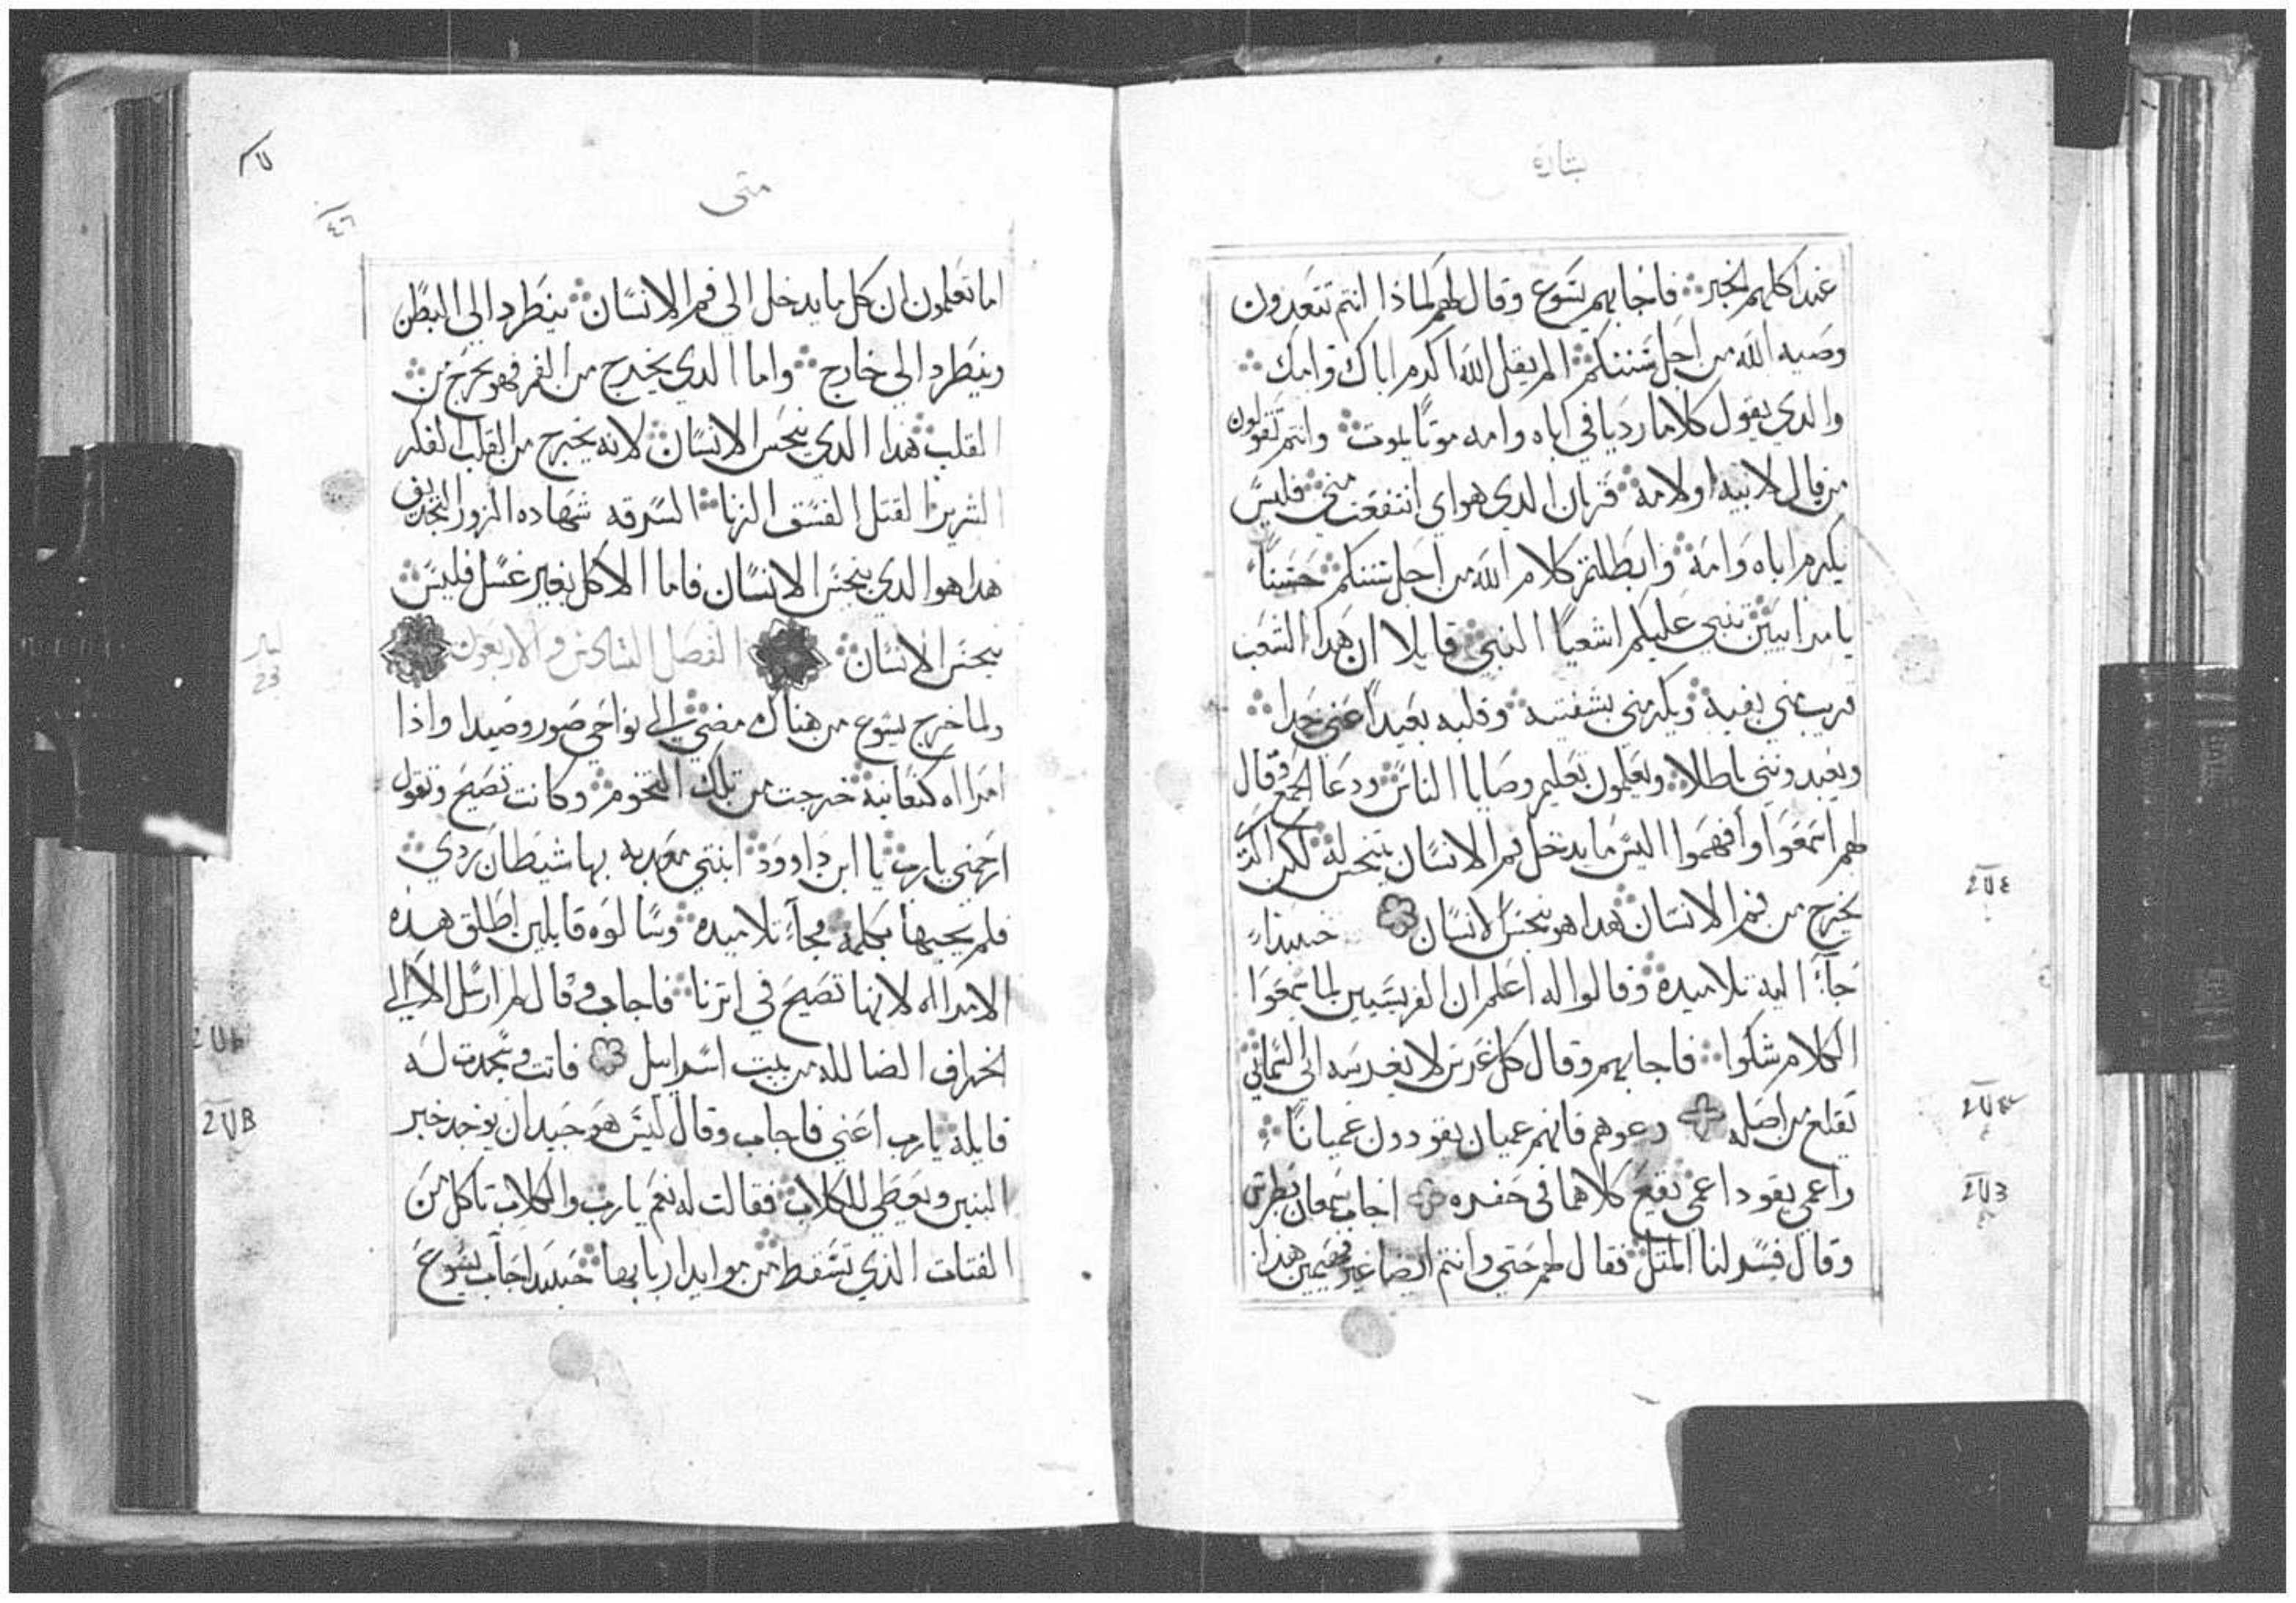 بشارة
عند اكلهم الخبز فاجابهم يسوع وقال لهم لماذا انتم تتعدون
وصيه الله من اجل سننكم الم يقل الله اكرم اباك وامك
والدي يقول كلاما رديا في اباه وامه موتا يموت وانتم تقولون
من قال لابيه او لامه قربان الدي هو اي انتفعت مني فليس
يكرم اباه وامه وابطلتم كلام الله من اجل سننكم حسنا
يا مرايين تنبي عليكم اشعيا النبي قايلا ان هدا الشعب
قريب مني بفيه ويكرمني بشفتيه وقلبه بعيدا عني جدا
ويعبدونني باطلا ويعلمون تعليم وصايا الناس ودعا الجمع وقال
لهم اسمعوا وافهموا اليس ما يدخل فم الانسان ينجسه لكن الذي
يخرج من فم الانسان هدا هو ينجس الانسان حينيدا
جآء اليه تلاميده وقالوا له اعلم ان الفريسيين لما سمعوا
الكلام شكوا فاجابهم وقال كل غرس لا يغرسه ابي السماني
تقلع من اصله دعوهم فانهم عميان يقودون عميانا
واعمي يقود اعمي يقع كلاهما في حفره اجاب سمعان بطرس
وقال فسر لنا المتل فقال لهم حتي وانتم ايضا غير فهيمين هذا
متى
٤٦
اما تعلمون ان كل ما يدخل الي فم الانسان ينطرد الي البطن
وينطرد الي خارج واما الدي يخرج من الفم فهو يخرج من
القلب هدا الدي ينجس الانسان لانه يخرج من القلب الفكر
الشرير القتل الفسق الزنا السرقه شهاده الزور التجديف
هدا هو الدي ينجس الانسان فاما الاكل بغير غسل فليس
ينجس الانسان الفصل السادس والاربعون
ولما خرج يسوع من هناك مضي الي نواحي صور وصيدا واذا
امراه كنعانية خرجت من تلك التخوم وكانت تصيح وتقول
ارحمني يا رب يا ابن داوود ابنتي معدبه بها شيطان ردي
فلم يجيبها بكلمة فجآء تلاميده وسالوه قايلين اطلق هده
الامراه لانها تصيح في اترنا فاجاب وقال لم ارسل الا الي
الخراف الضالله من بيت اسراييل فاتت وسجدت له
قايله يا رب اعني فاجاب وقال ليس هو جيد ان يوخد خبز
البنين ويعطي للكلاب فقالت له نعم يا رب والكلاب تاكل من
الفتات الذي تسقط من موايد اربابها حينيدا اجاب يسوع